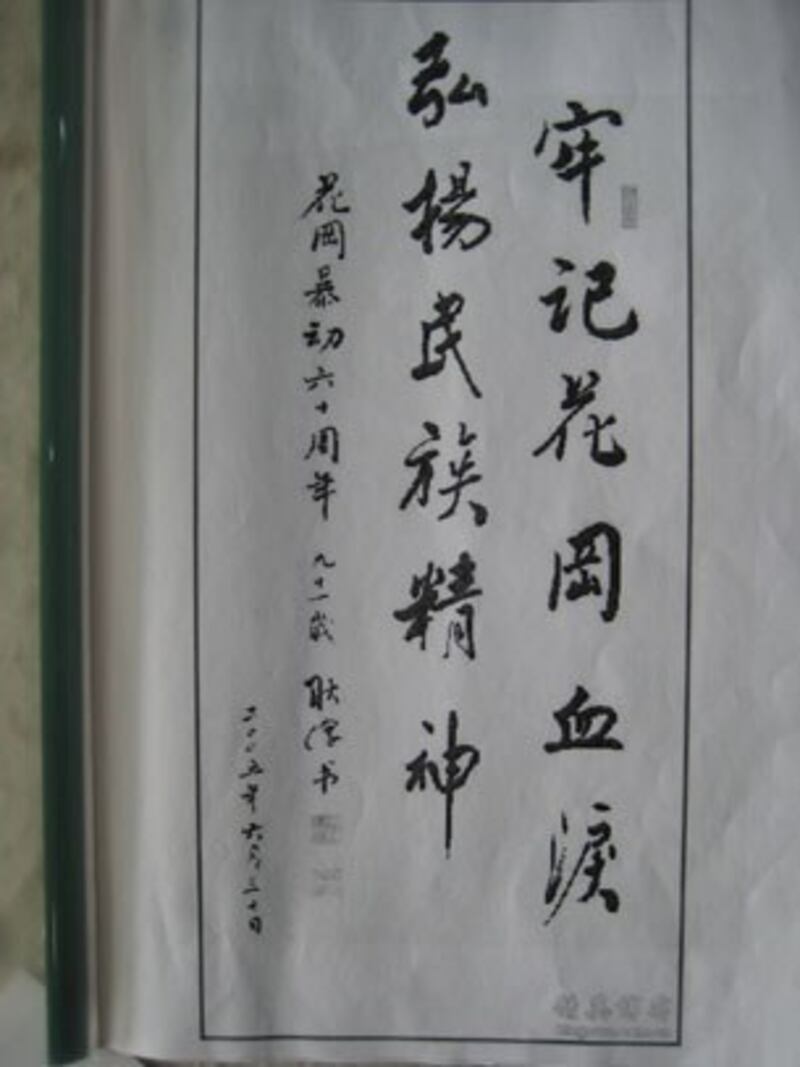 牢记花冈血淚
弘楊民族精神
花冈暴动六十周年 九十一歲 耿谆书
二〇〇五年六月三十日